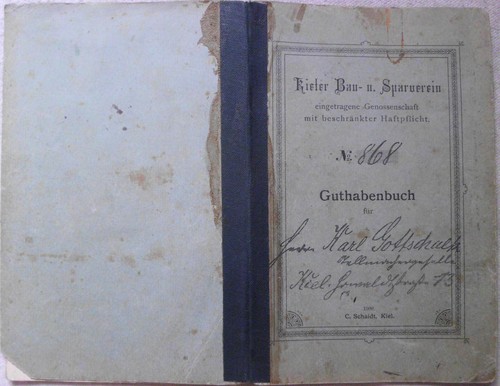 Kieler Bau- u. Sparverein
eingetragene Genossenschaft
mit beschränkter Haftpflicht.
No. 868
Guthabenbuch
für
Herrn Karl Gottschalk
Kiel
C. Schaidt, Kiel.